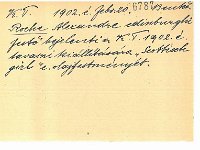 K.T. 1902. é. febr. 20. 6787
Roche Alexandre edinburghi
festő bejelenti a K.T. 1902. é.
tavaszi kiállítására „Scottisch
girl" c. olajfestményét.